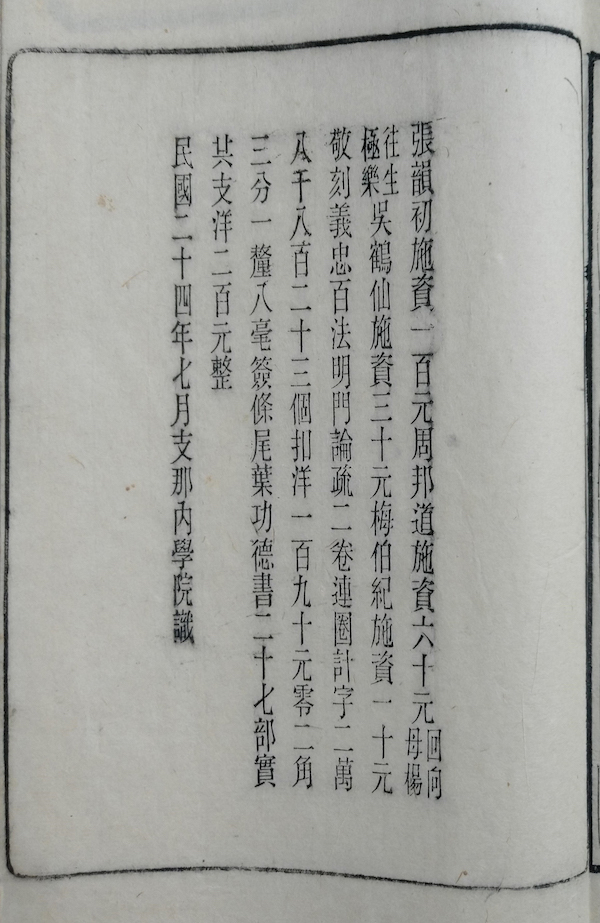 張韻初施資一百元周邦道施資六十元回向母楊
往生極樂吳鶴仙施資三十元梅伯紀施資一十元
敬刻義忠百法明門論疏二卷連圈計字二萬
八千八百二十三個扣洋一百九十元零二角
三分一釐八毫簽條尾葉功德書二十七部實
共支洋二百元整
民國二十四年七月支那內學院識